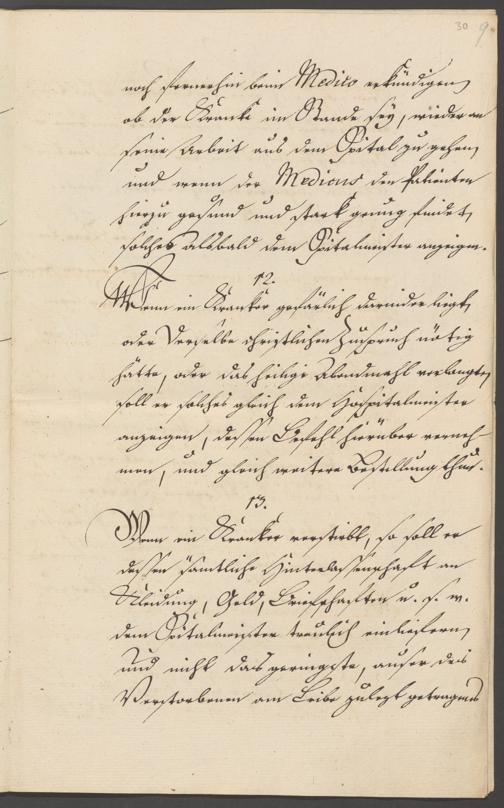 30 9.
noch fernerhin beim Medico erkündigen,
ob der Kranke im Stande sey, wieder an
seine Arbeit aus dem Spital zu gehen,
und wenn der Medicus den Patienten
hierzu gesund und stark genug findet,
solches alsbald dem Spitalmeister anzeigen.
12.
Wenn ein Kranker gefärlich darnieder liegt,
oder derselbe christlichen Zuspruch nötig
hätte, oder das heilige Abendmahl verlangte,
soll er solches gleich dem Hospitalmeister
anzeigen, dessen Befehl hierüber verneh-
men, und gleich weitere Bestellung thun.
13.
Wenn ein Kranker verstirbt, so soll er
dessen sämtliche Hinterlassenschaft an
Kleidung, Geld, Briefschaften u. s. w.
dem Spitalmeister treulich einliefern,
und nicht das geringste, auser des
Verstorbenen am Leibe zuletzt getragenes